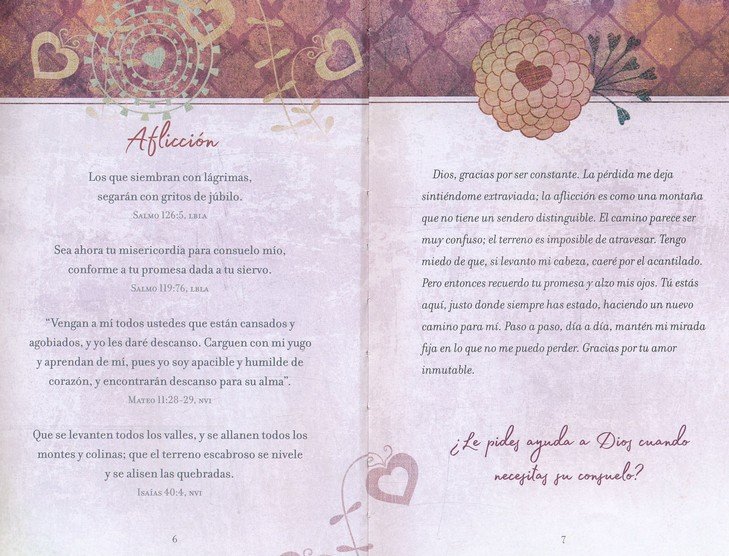 Aflicción
Los que siembran con lágrimas,
segarán con gritos de júbilo.
Salmo 126:5, lbla
Sea ahora tu misericordia para consuelo mío,
conforme a tu promesa dada a tu siervo.
Salmo 119:76, lbla
“Vengan a mí todos ustedes que están cansados y
agobiados, y yo les daré descanso. Carguen con mi yugo
y aprendan de mí, pues yo soy apacible y humilde de
corazón, y encontrarán descanso para su alma”.
Mateo 11:28–29, nvi
Que se levanten todos los valles, y se allanen todos los
montes y colinas; que el terreno escabroso se nivele
y se alisen las quebradas.
Isaías 40:4, nvi
6
Dios, gracias por ser constante. La pérdida me deja
sintiéndome extraviada; la aflicción es como una montaña
que no tiene un sendero distinguible. El camino parece ser
muy confuso; el terreno es imposible de atravesar. Tengo
miedo de que, si levanto mi cabeza, caeré por el acantilado.
Pero entonces recuerdo tu promesa y alzo mis ojos. Tú estás
aquí, justo donde siempre has estado, haciendo un nuevo
camino para mí. Paso a paso, día a día, mantén mi mirada
fija en lo que no me puedo perder. Gracias por tu amor
inmutable.
¿Le pides ayuda a Dios cuando
necesitas su consuelo?
7